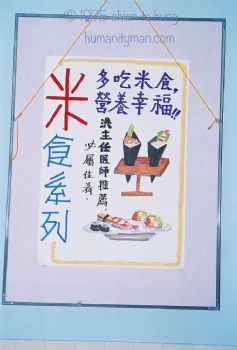 © 1995 chien is hung
humanityman.com
多吃米食,
營養幸福!!
米食系列
洪主任醫師推薦,
必屬佳着.